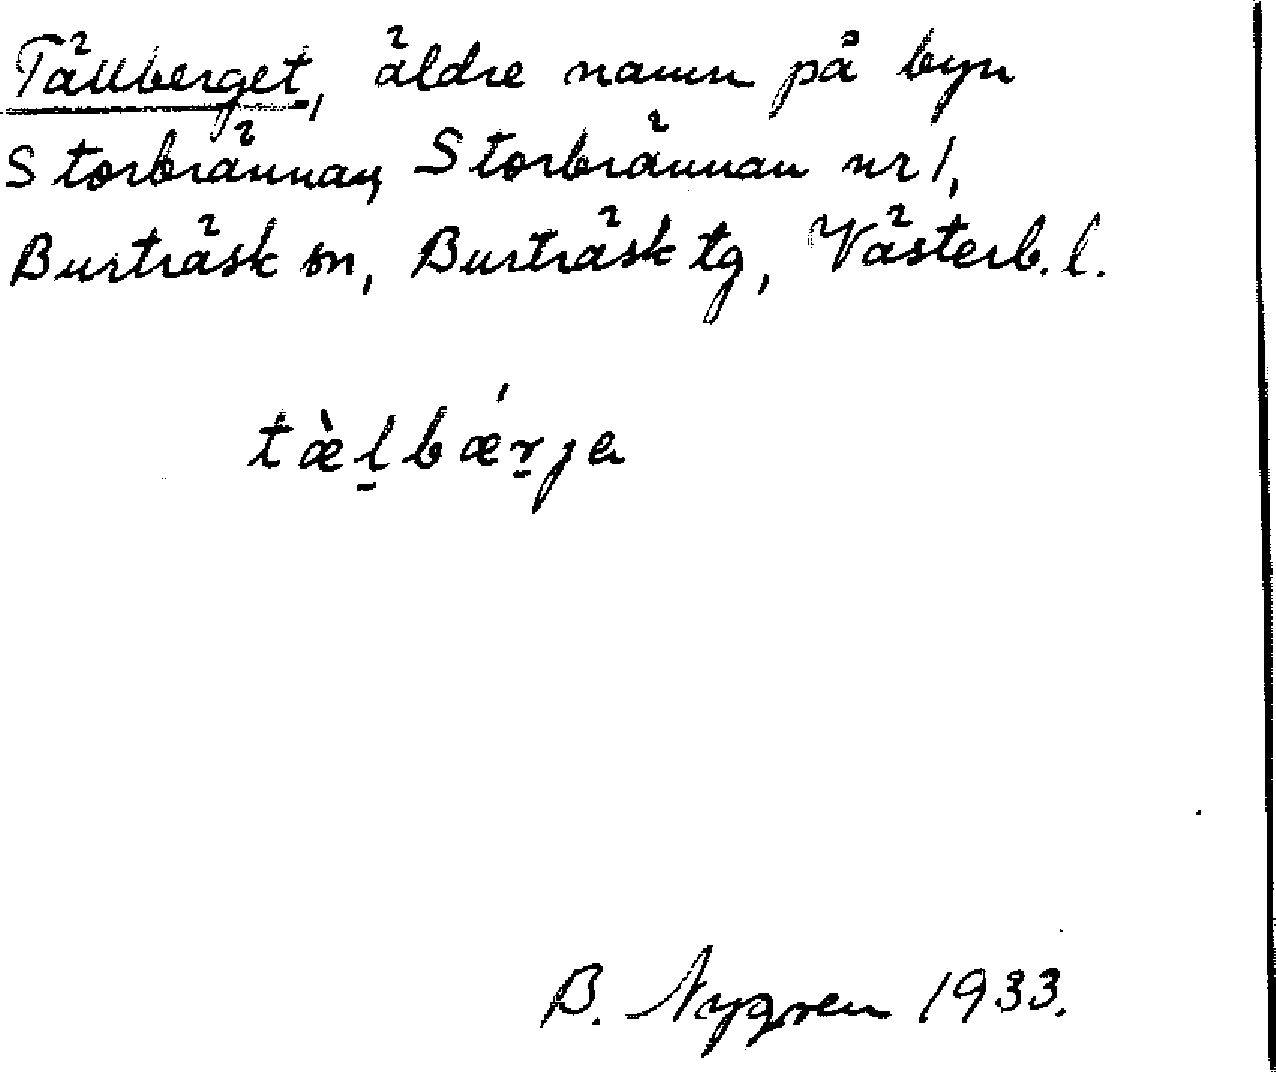 Tällberget, äldre namn på byn
Storbrännan, Storbrännan nr 1,
Burträsk sn, Burträsk tg, Västerb. l.
tæ̀l̠bǽr̠ja
B. Nygren 1933.